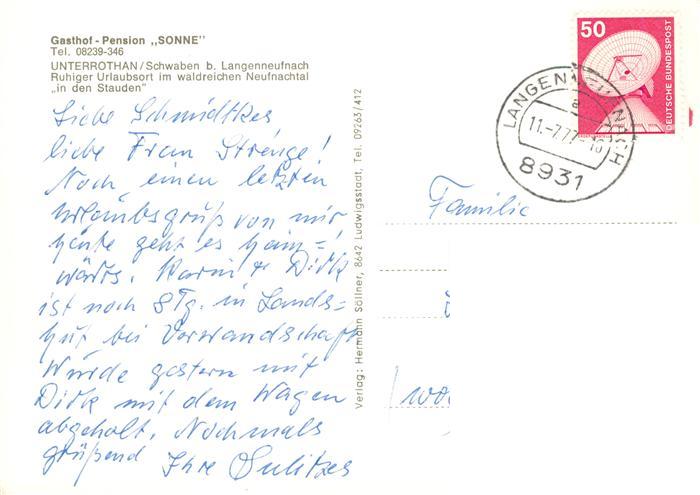 Gasthof - Pension „SONNE"
Tel. 08239-346
UNTERROTHAN/Schwaben b. Langenneufnach
Ruhiger Urlaubsort im waldreichen Neufnachtal
„in den Stauden"
Liebe Schmidtkes
liebe Frau Strenge!
Noch einen letzten
Urlaubsgruß von mir
heute geht es heim=
wärts. Karin & Dirk
ist noch 8 Tg. in Lands=
hut bei Verwandschaft
Würde gestern mit
Dirk mit dem Wagen
abgeholt. Nochmals
grüßend Ihre
Verlag: Hermann Söllner, 8642 Ludwigsstadt, Tel. 09263/412
50
DEUTSCHE BUNDESPOST
LANGENNEUFNACH
a
11.-7.77-16
8931
Familie